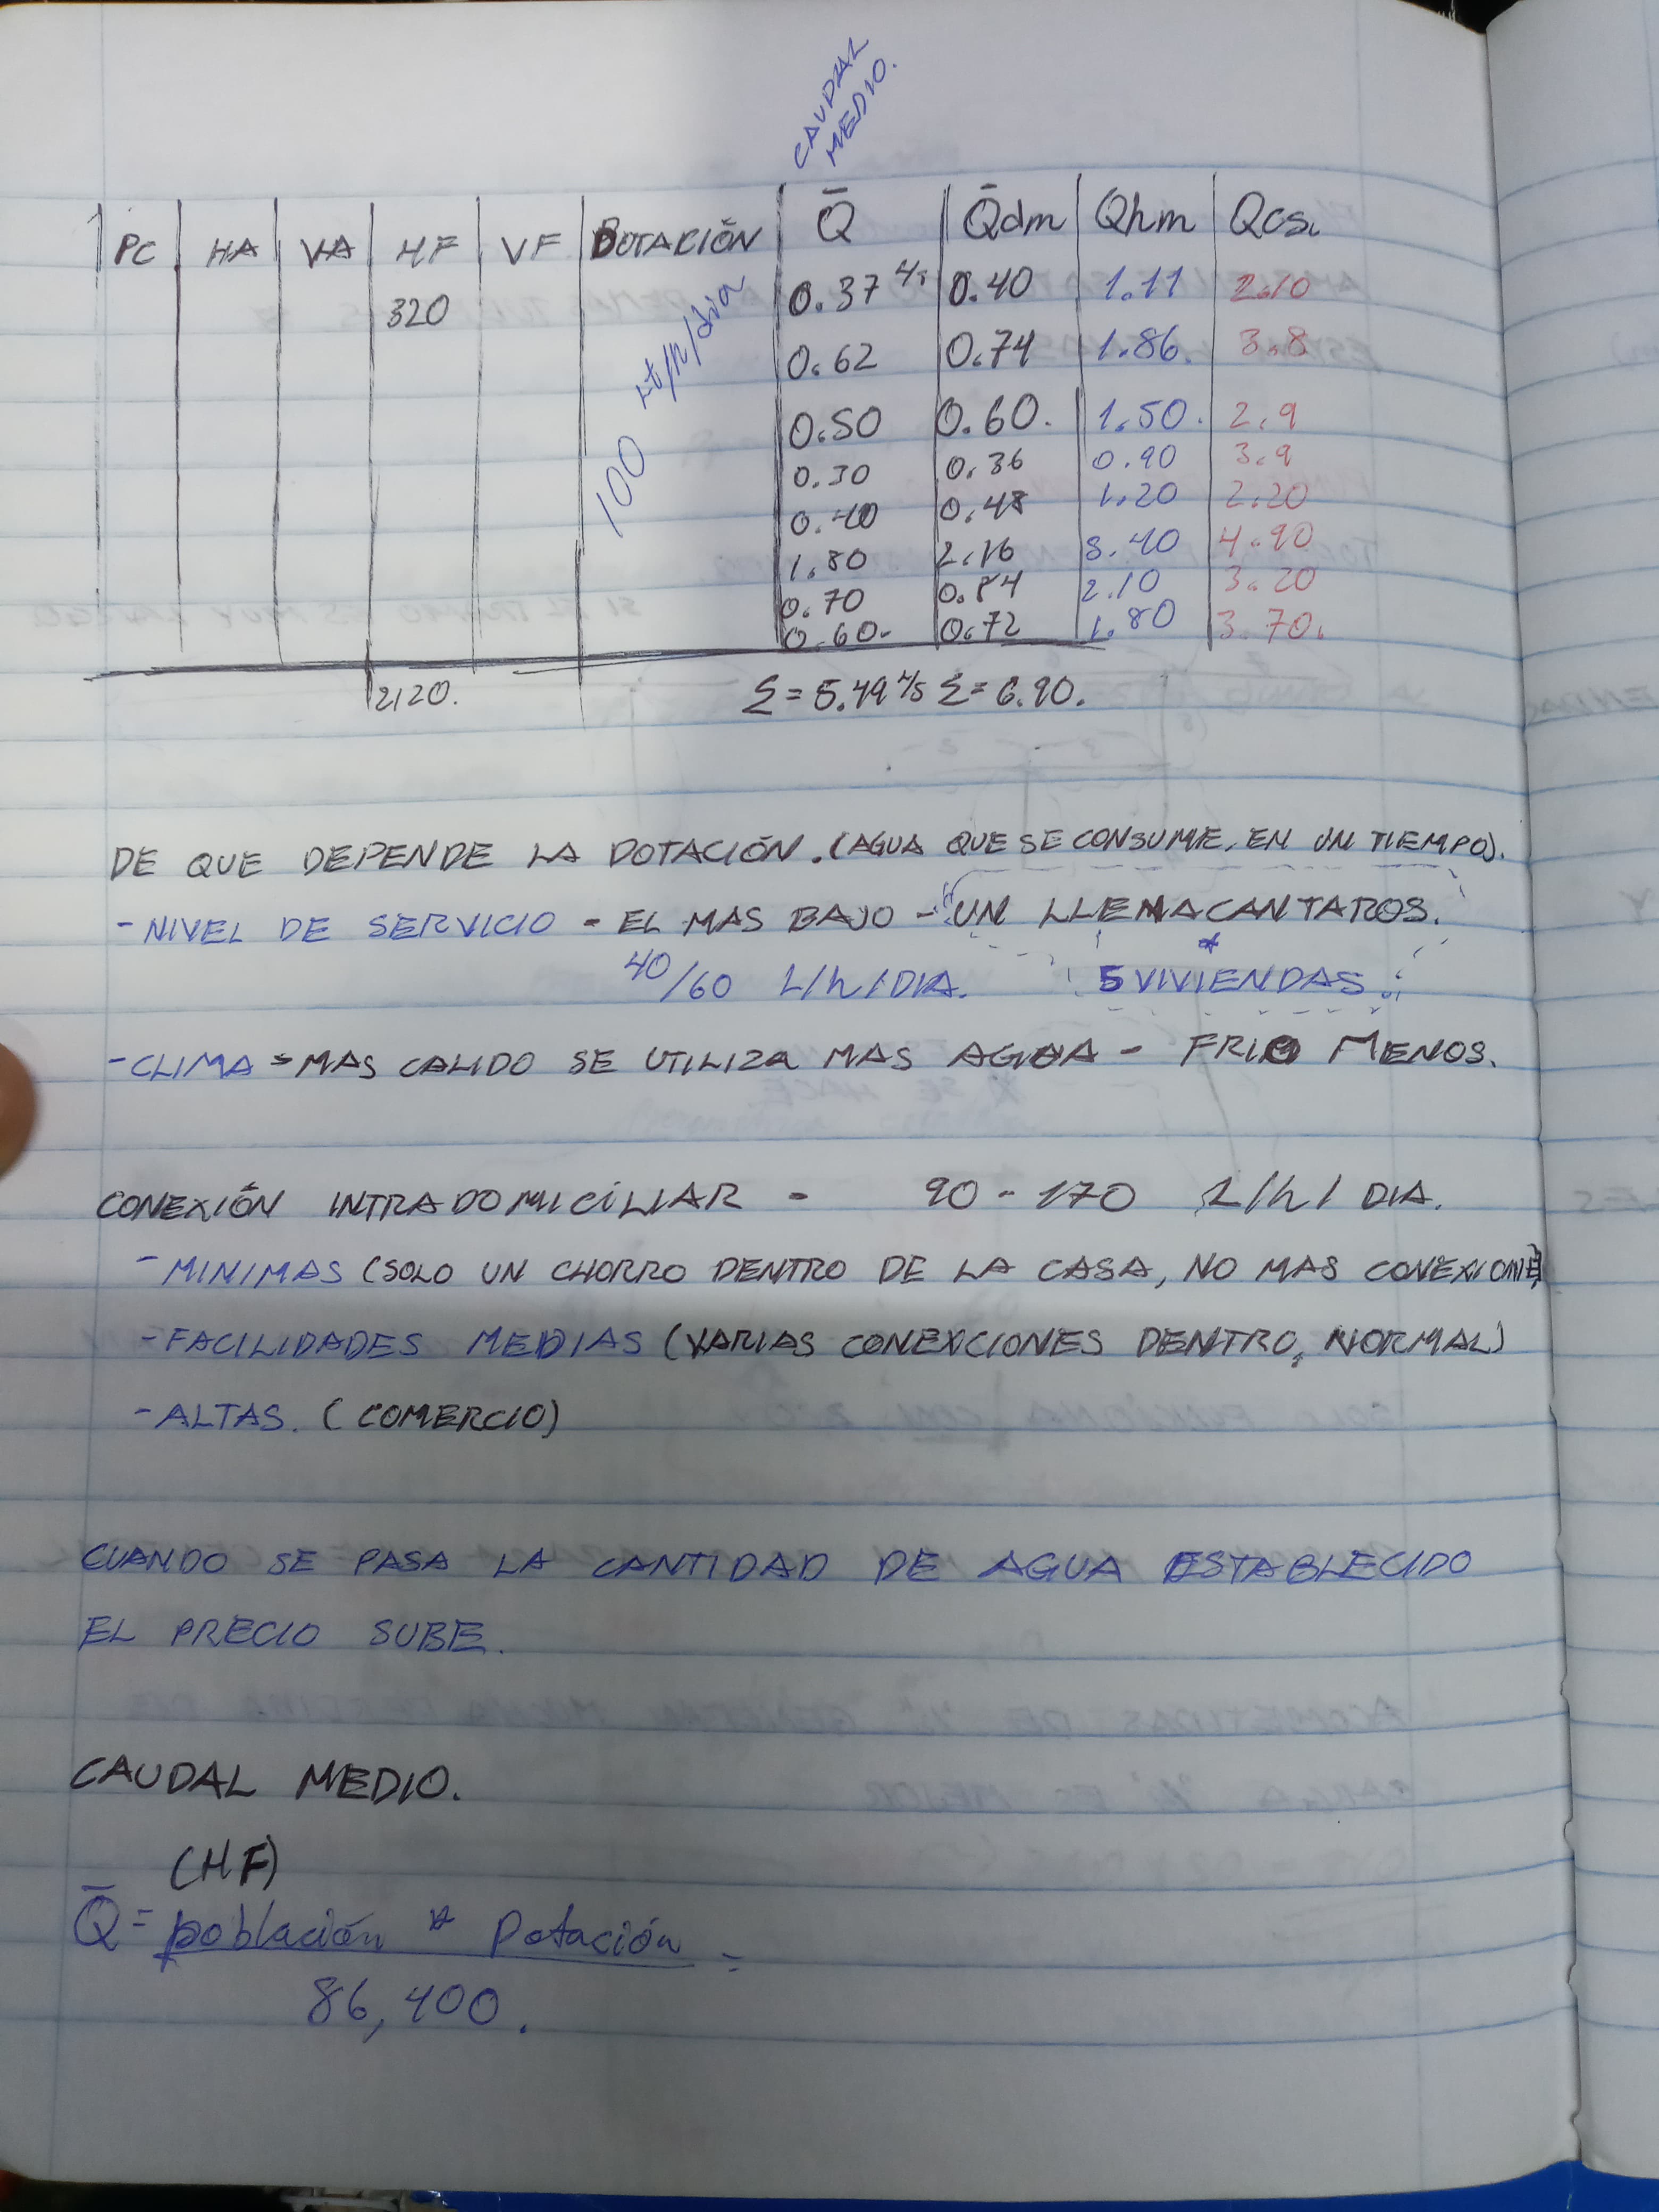 CAUDAL
MEDIO.
PC HA VA HF VF DOTACIÓN Q̄ Q̄dm Qhm Qcs.
320 100 Lt/h/dia 0.37 L/s 0.40 1.11 2.10
0.62 0.74 1.86. 3.8
0.50 0.60. 1.50. 2.9
0.30 0.36 0.90 3.9
0.40 0.48 1.20 2.20
1.80 2.16 5.40 4.90
0.70 0.84 2.10 3.20
0.60- 0.72 1.80 3.70.
2120. Σ = 5.49 L/s Σ = 6.90.
DE QUE DEPENDE LA DOTACIÓN. (AGUA QUE SE CONSUME, EN UN TIEMPO).
- NIVEL DE SERVICIO - EL MAS BAJO - UN LLENACANTAROS.
40/60 L/h/DIA. 5 VIVIENDAS.
- CLIMA = MAS CALIDO SE UTILIZA MAS AGUA - FRIO MENOS.
CONEXIÓN INTRADOMICILIAR - 90 - 170 L/h/DIA.
- MINIMAS (SOLO UN CHORRO DENTRO DE LA CASA, NO MAS CONEXIONES
- FACILIDADES MEDIAS (VARIAS CONEXCIONES DENTRO, NORMAL)
- ALTAS. (COMERCIO)
CUANDO SE PASA LA CANTIDAD DE AGUA ESTABLECIDO
EL PRECIO SUBE.
CAUDAL MEDIO.
(HF)
Q̄ = población * Dotación =
86,400.